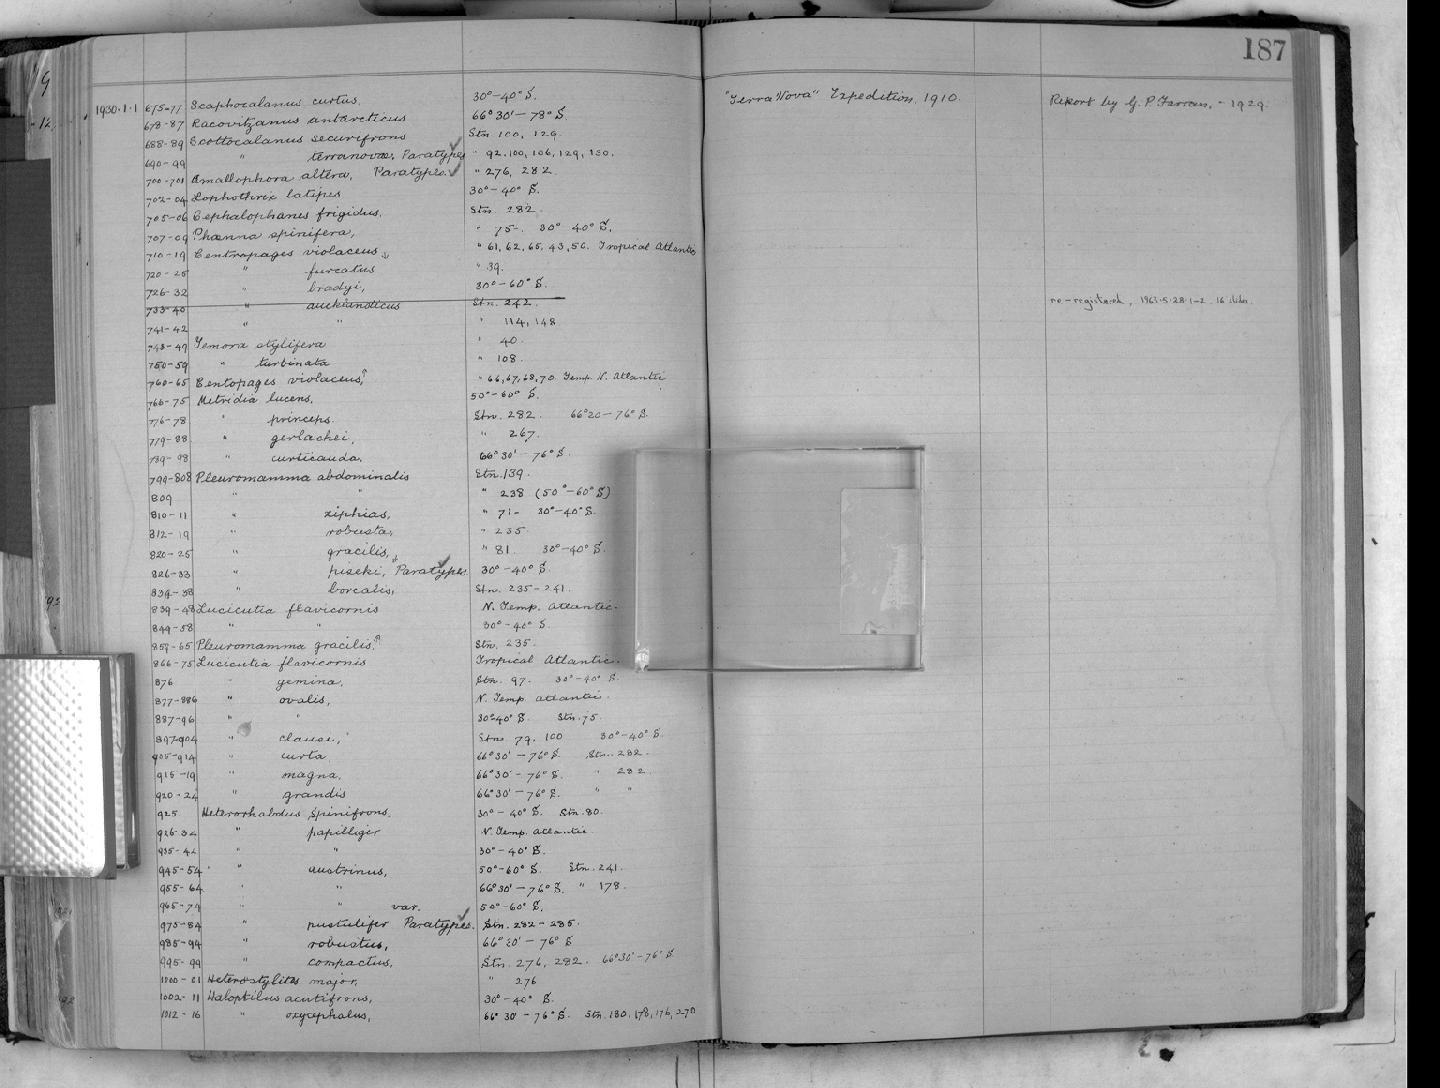 187
1930.1.1 675-77 Scaphocalanus curtus. 30°-40° S. "Terra Nova" Expedition, 1910. Report by G. P. Farran, - 1929.
678-87 Racovitzanus antarcticus 66°30'-78° S.
688-89 Scottocalanus securifrons Stn 100, 129.
690-99 " terranovae, Paratypes " 92, 100, 106, 129, 130.
700-701 Amallophora altera, Paratypes. " 276, 282.
702-04 Lophothrix latipes 30°-40° S.
705-06 Cephalophanes frigidus, Stn. 282.
707-09 Phaenna spinifera, " 75. 30° 40° S.
710-19 Centropages violaceus " 61, 62, 65, 43, 56. Tropical Atlantic
720-25 " furcatus " 39.
726-32 " bradyi, 30°-60° S.
733-40 " aucklandicus Stn. 242. re-registered, 1963.5.28.1-2. 16 slides.
741-42 " " " 114, 148.
743-49 Temora stylifera " 40.
750-59 " turbinata " 108.
760-65 Centopages violaceus, " 66, 67, 68, 70 Temp. N. Atlantic
766-75 Metridia lucens, 50°-60° S.
776-78 " princeps. Stn. 282. 66°20-76° S.
779-88 " gerlachei, " 267.
789-98 " curticauda, 66°30'-76° S.
799-808 Pleuromamma abdominalis Stn. 139.
809 " " " 238 (50°-60° S)
810-11 " xiphias, " 71- 30°-40° S.
812-19 " robusta, " 235.
820-25 " gracilis, " 81. 30°-40° S.
826-33 " piseki, Paratypes. 30°-40° S.
834-38 " borealis, Stn. 235-241.
839-48 Lucicutia flavicornis N. Temp. Atlantic.
849-58 " " 30°-40° S.
859-65 Pleuromamma gracilis. Stn. 235.
866-75 Lucicutia flavicornis Tropical Atlantic.
876 " gemina, Stn. 97. 30°-40° S.
877-886 " ovalis, N. Temp. Atlantic.
887-96 " " 30°40' S. Stn. 75.
897-904 " clausi, Stns 79, 100 30°-40° S.
905-914 " curta 66°30'-76° S. Stn. 282.
915-19 " magna, 66°30'-76° S. " 282.
920-24 " grandis 66°30'-76° S. " "
925 Heterorhabdus spinifrons, 30°-40° S. Stn. 80.
926-34 " papilliger N. Temp. Atlantic.
935-44 " " 30°-40° S.
945-54 " austrinus, 50°-60° S. Stn. 241.
955-64 " " 66°30'-76° S. " 178.
965-74 " " var. 50°-60° S.
975-84 " pustulifer Paratypes. Stn. 282-285.
985-94 " robustus, 66°30'-76° S
995-99 " compactus, Stn. 276, 282. 66°30'-76° S
1000-01 Heterostylites major, " 276
1002-11 Haloptilus acutifrons, 30°-40° S.
1012-16 " oxycephalus, 66°30'-76° S. Stn. 180, 178, 176, 270